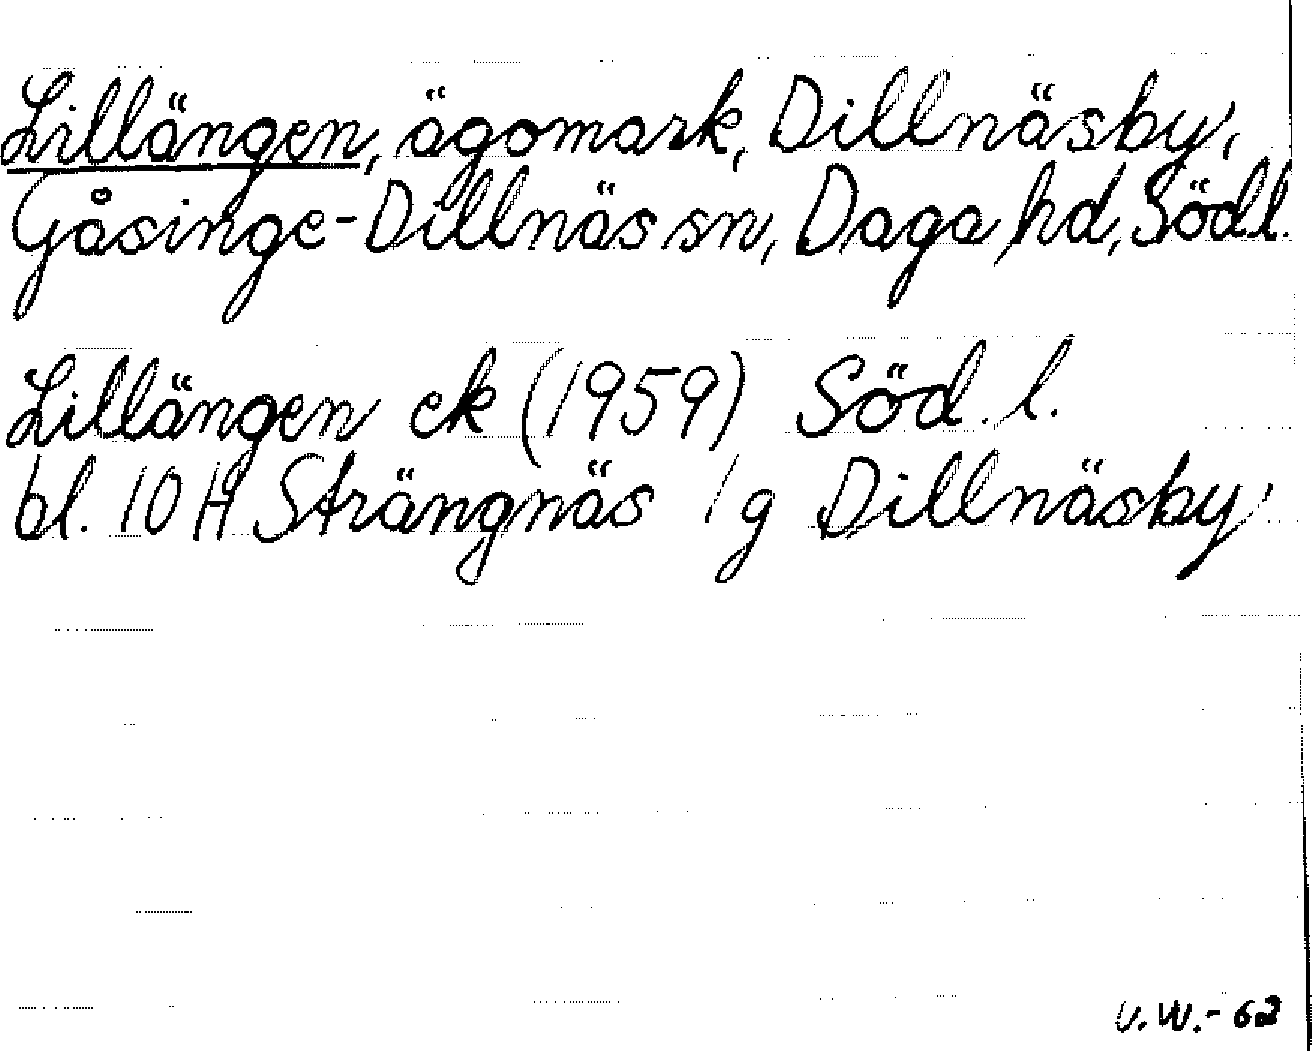 Lillängen, ägomark, Dillnäsby,
Gåsinge-Dillnäs sn, Daga hd, Södl.
Lillängen ek (1959) Söd. l.
bl. 10 H Strängnäs 1g Dillnäsby
U.W.-62